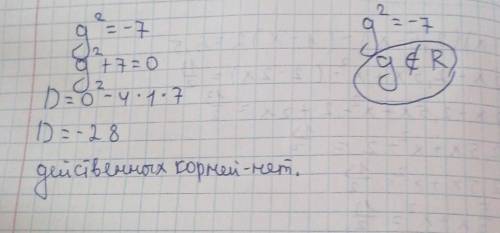 g² = -7
g² + 7 = 0
D = 0² - 4 · 1 · 7
D = -28
действенных корней - нет.
g² = -7
g ∉ R